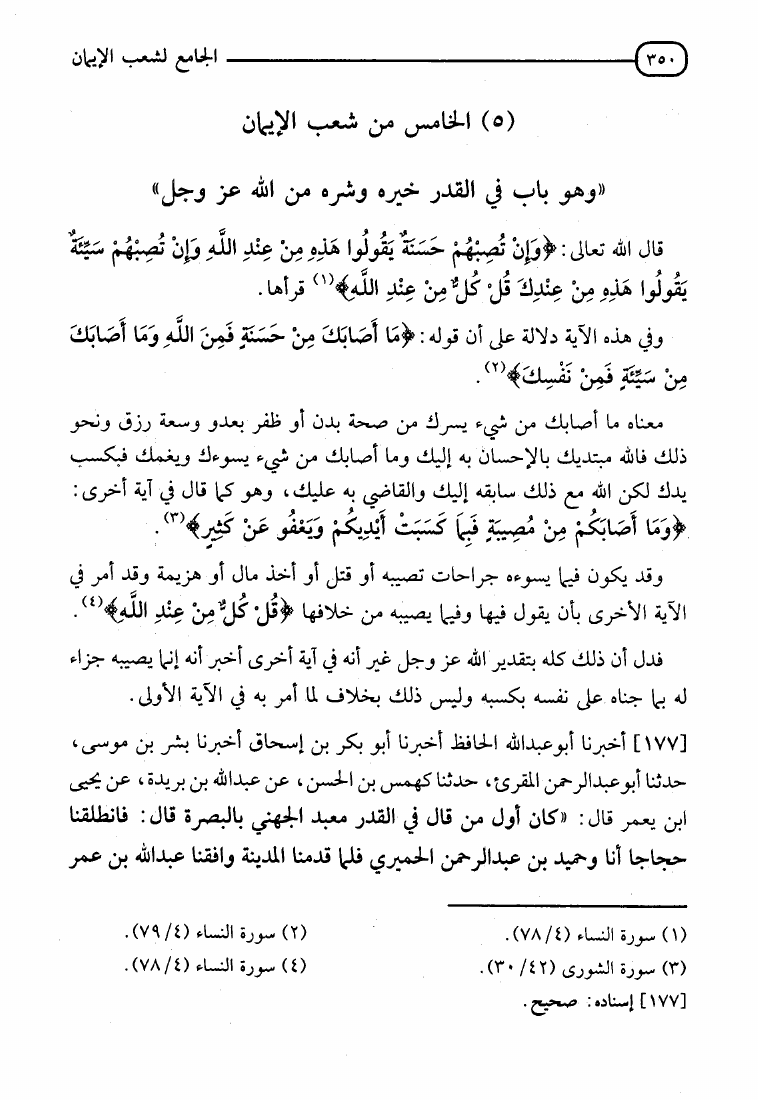 ٣٥٠ الجامع لشعب الإيمان
(٥) الخامس من شعب الإيمان
«وهو باب في القدر خيره وشره من الله عز وجل»
قال الله تعالى: ﴿وَإِنْ تُصِبْهُمْ حَسَنَةٌ يَقُولُوا هَذِهِ مِنْ عِنْدِ اللَّهِ وَإِنْ تُصِبْهُمْ سَيِّئَةٌ
يَقُولُوا هَذِهِ مِنْ عِنْدِكَ قُلْ كُلٌّ مِنْ عِنْدِ اللَّهِ﴾(١) قرأها.
وفي هذه الآية دلالة على أن قوله: ﴿مَا أَصَابَكَ مِنْ حَسَنَةٍ فَمِنَ اللَّهِ وَمَا أَصَابَكَ
مِنْ سَيِّئَةٍ فَمِنْ نَفْسِكَ﴾(٢).
معناه ما أصابك من شيء يسرك من صحة بدن أو ظفر بعدو وسعة رزق ونحو
ذلك فالله مبتديك بالإحسان به إليك وما أصابك من شيء يسوءك ويغمك فبكسب
يدك لكن الله مع ذلك سابقه إليك والقاضي به عليك، وهو كما قال في آية أخرى:
﴿وَمَا أَصَابَكُمْ مِنْ مُصِيبَةٍ فَبِمَا كَسَبَتْ أَيْدِيكُمْ وَيَعْفُو عَنْ كَثِيرٍ﴾(٣).
وقد يكون فيما يسوءه جراحات تصيبه أو قتل أو أخذ مال أو هزيمة وقد أمر في
الآية الأخرى بأن يقول فيها وفيما يصيبه من خلافها ﴿قُلْ كُلٌّ مِنْ عِنْدِ اللَّهِ﴾(٤).
فدل أن ذلك كله بتقدير الله عز وجل غير أنه في آية أخرى أخبر أنه إنما يصيبه جزاء
له بما جناه على نفسه بكسبه وليس ذلك بخلاف لما أمر به في الآية الأولى.
[١٧٧] أخبرنا أبوعبدالله الحافظ أخبرنا أبو بكر بن إسحاق أخبرنا بشر بن موسى،
حدثنا أبوعبدالرحمن المقرئ، حدثنا كهمس بن الحسن، عن عبدالله بن بريدة، عن يحيى
ابن يعمر قال: «كان أول من قال في القدر معبد الجهني بالبصرة قال: فانطلقنا
حجاجا أنا وحميد بن عبدالرحمن الحميري فلما قدمنا المدينة وافقنا عبدالله بن عمر
(١) سورة النساء (٧٨/٤). (٢) سورة النساء (٧٩/٤).
(٣) سورة الشورى (٣٠/٤٢). (٤) سورة النساء (٧٨/٤).
[١٧٧] إسناده: صحيح.